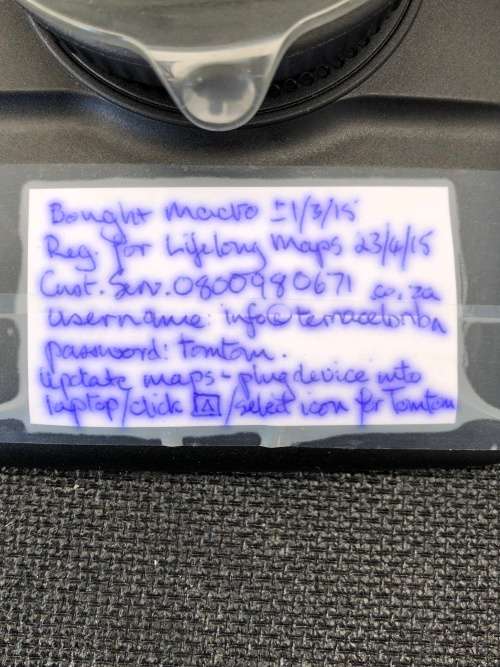 Bought Macro ±1/3/15
Reg. for Lifelong Maps 23/4/15
Cust. Serv. 0800980671 .co.za
username:
password: tomtom.
update maps - plug device into
laptop/click /select icon for Tomtom